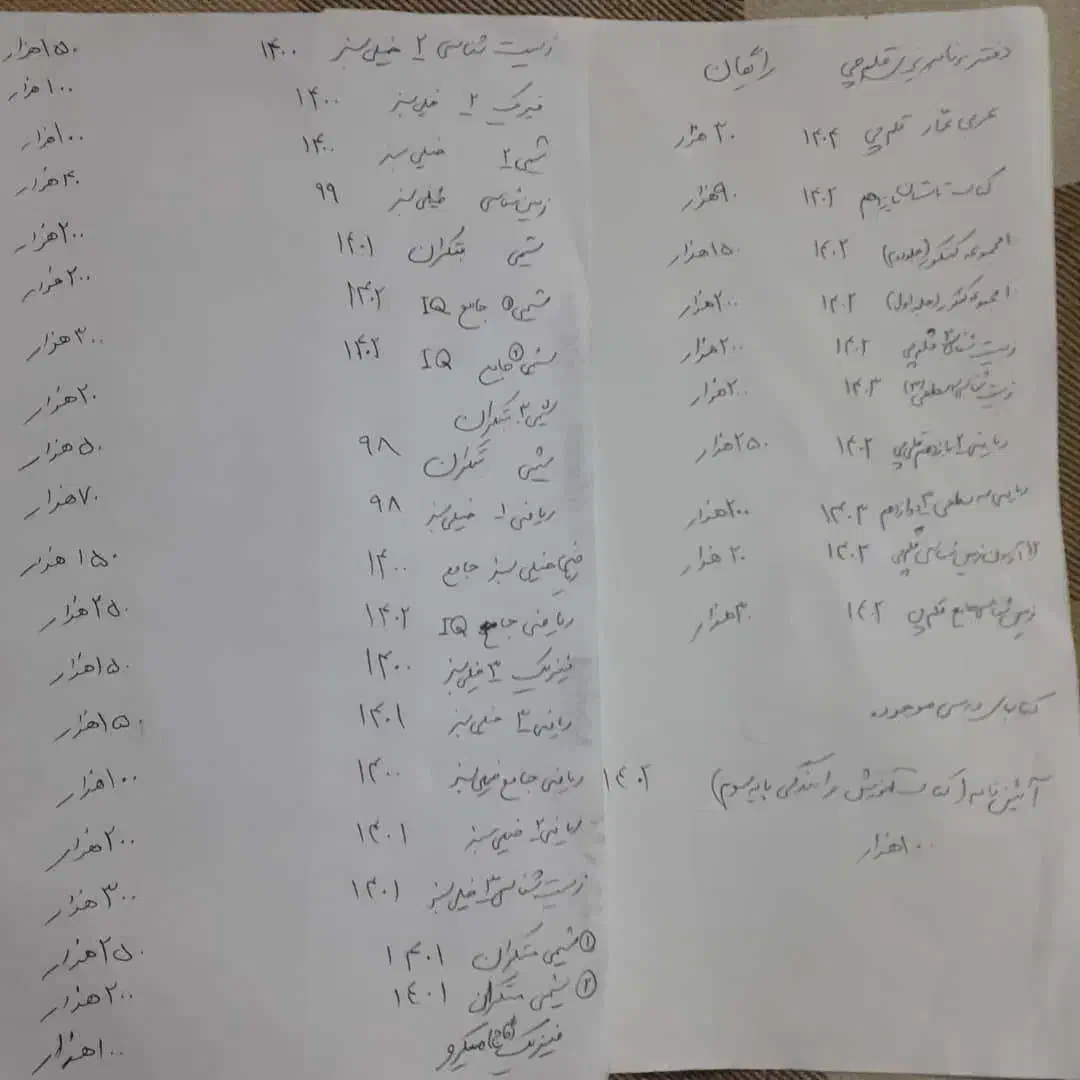 دفتر برنامه ریزی قلم چی رایگان
عربی عمار قلم چی ۱۴۰۲ ۳۰ هزار
کتاب تابستان یازدهم ۱۴۰۲ ۹۰هزار
مجموعه کنکور (جلد دوم) ۱۴۰۲ ۱۵۰هزار
مجموعه کنکور (جلد اول) ۱۴۰۲ ۲۰۰هزار
زیست شناسی ۲ قلم چی ۱۴۰۲ ۲۰۰هزار
زیست شناسی سه سطحی (۳) ۱۴۰۳ ۲۰۰هزار
ریاضی ۲ یازدهم قلم چی ۱۴۰۲ ۲۵۰هزار
ریاضی سه سطحی ۳ دوازدهم ۱۴۰۳ ۲۰۰هزار
آزمون زمین شناسی قلم چی ۱۴۰۲ ۲۰ هزار
زمین شناسی جامع قلم چی ۱۴۰۲ ۳۰هزار
کتابای درسی موجوده
آئین نامه (کتاب آموزش رانندگی پایه سوم) ۱۴۰۲
۱۰۰هزار
زیست شناسی ۲ خیلی سبز ۱۴۰۰ ۱۵۰هزار
فیزیک ۲ خیلی سبز ۱۴۰۰ ۱۰۰هزار
شیمی ۲ خیلی سبز ۱۴۰۰ ۱۰۰هزار
زمین شناسی خیلی سبز ۹۹ ۴۰هزار
شیمی مبتکران ۱۴۰۱ ۲۰۰هزار
شیمی جامع IQ ۱۴۰۲ ۲۰۰هزار
شیمی جامع IQ ۱۴۰۲ ۳۰۰هزار
شیمی ۳ مبتکران ۲۰هزار
شیمی مبتکران ۹۸ ۵۰هزار
ریاضی ۱ خیلی سبز ۹۸ ۷۰هزار
شیمی خیلی سبز جامع ۱۴۰۰ ۱۵۰هزار
ریاضی جامع IQ ۱۴۰۲ ۲۵۰هزار
فیزیک ۳ خیلی سبز ۱۴۰۰ ۱۵۰هزار
ریاضی ۳ خیلی سبز ۱۴۰۱ ۱۵۰هزار
ریاضی جامع خیلی سبز ۱۴۰۰ ۱۰۰هزار
ریاضی ۲ خیلی سبز ۱۴۰۱ ۲۰۰هزار
زیست شناسی ۳ خیلی سبز ۱۴۰۱ ۳۰۰هزار
① شیمی مبتکران ۱۴۰۱ ۲۵۰هزار
② شیمی مبتکران ۱۴۰۱ ۲۰۰هزار
فیزیک میکرو ۱۰۰هزار